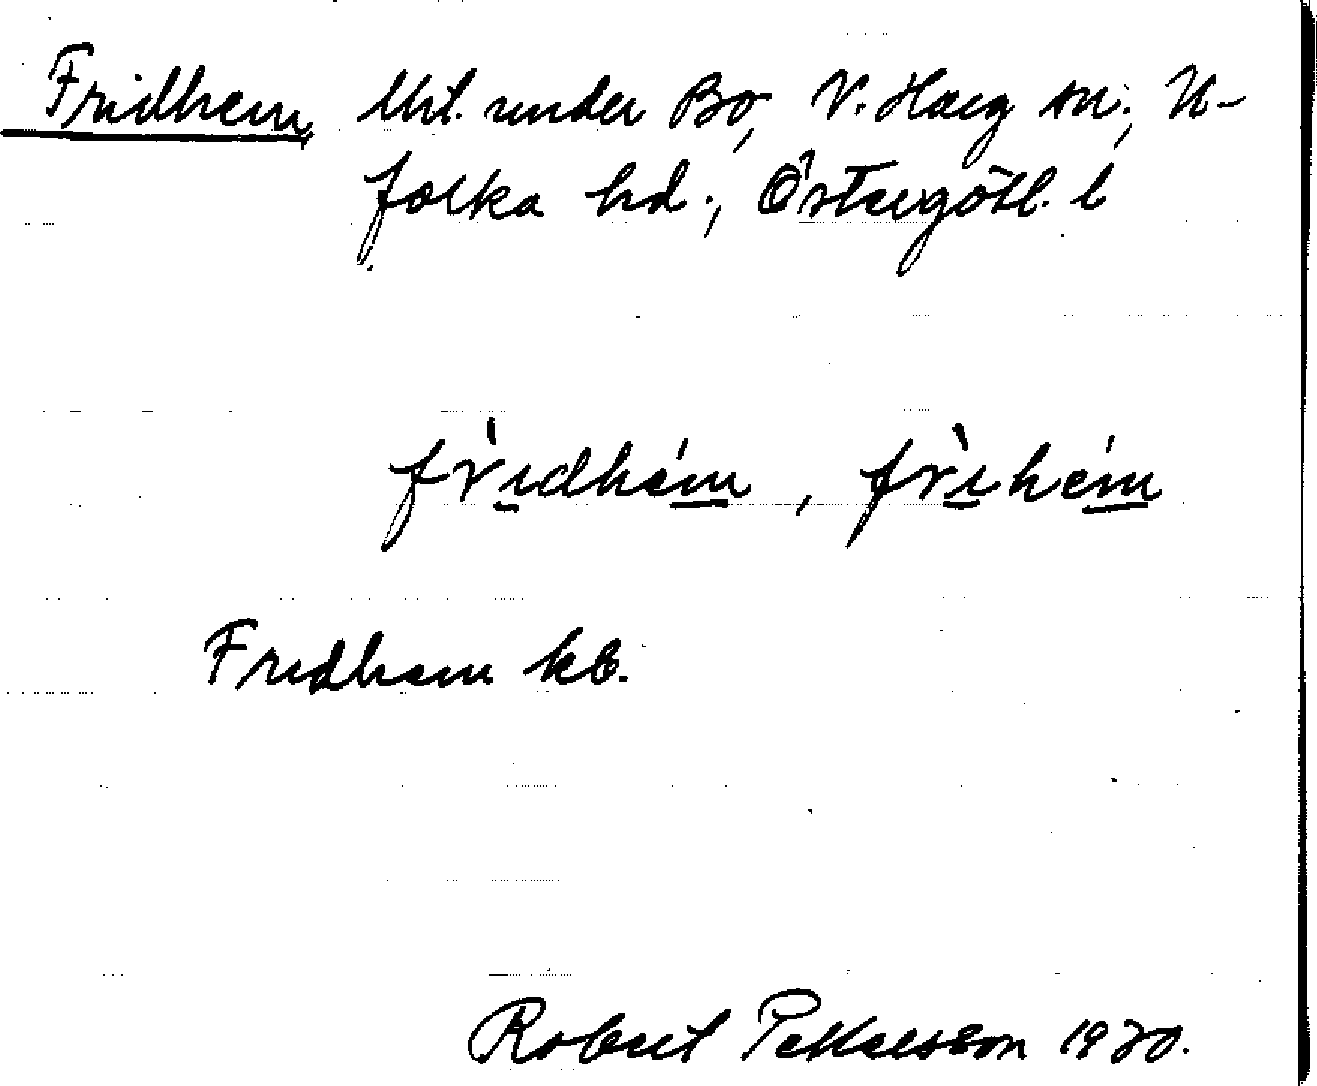 Fridhem, Utl. under Bo, V. Harg sn., V-
folka hd., Östergötl. l
frìdhém, frìhém
Fridhem kb.
Robert Pettersson 1920.